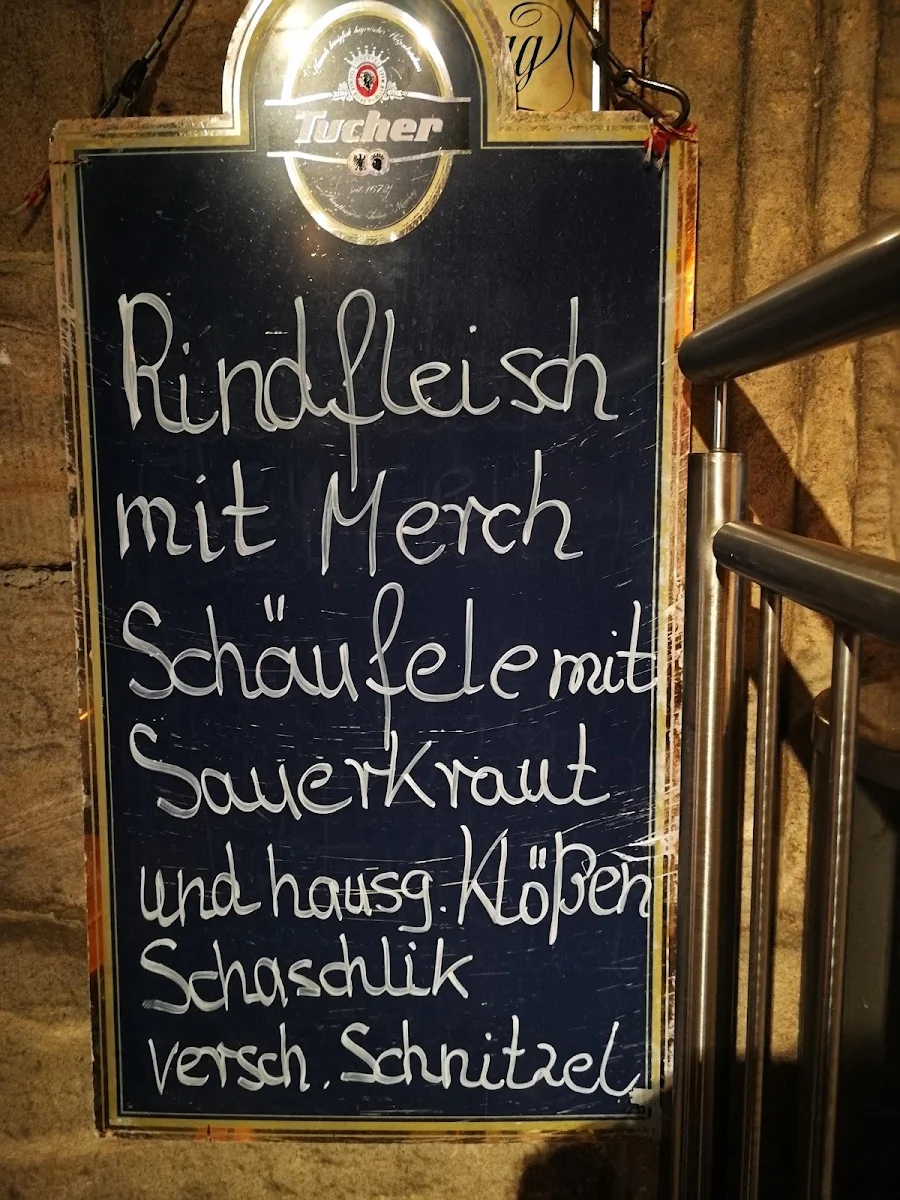 Tucher
seit 1672
Rindfleisch
mit Merch
Schäufele mit
Sauerkraut
und hausg. Klößen
Schaschlik
versch. Schnitzel